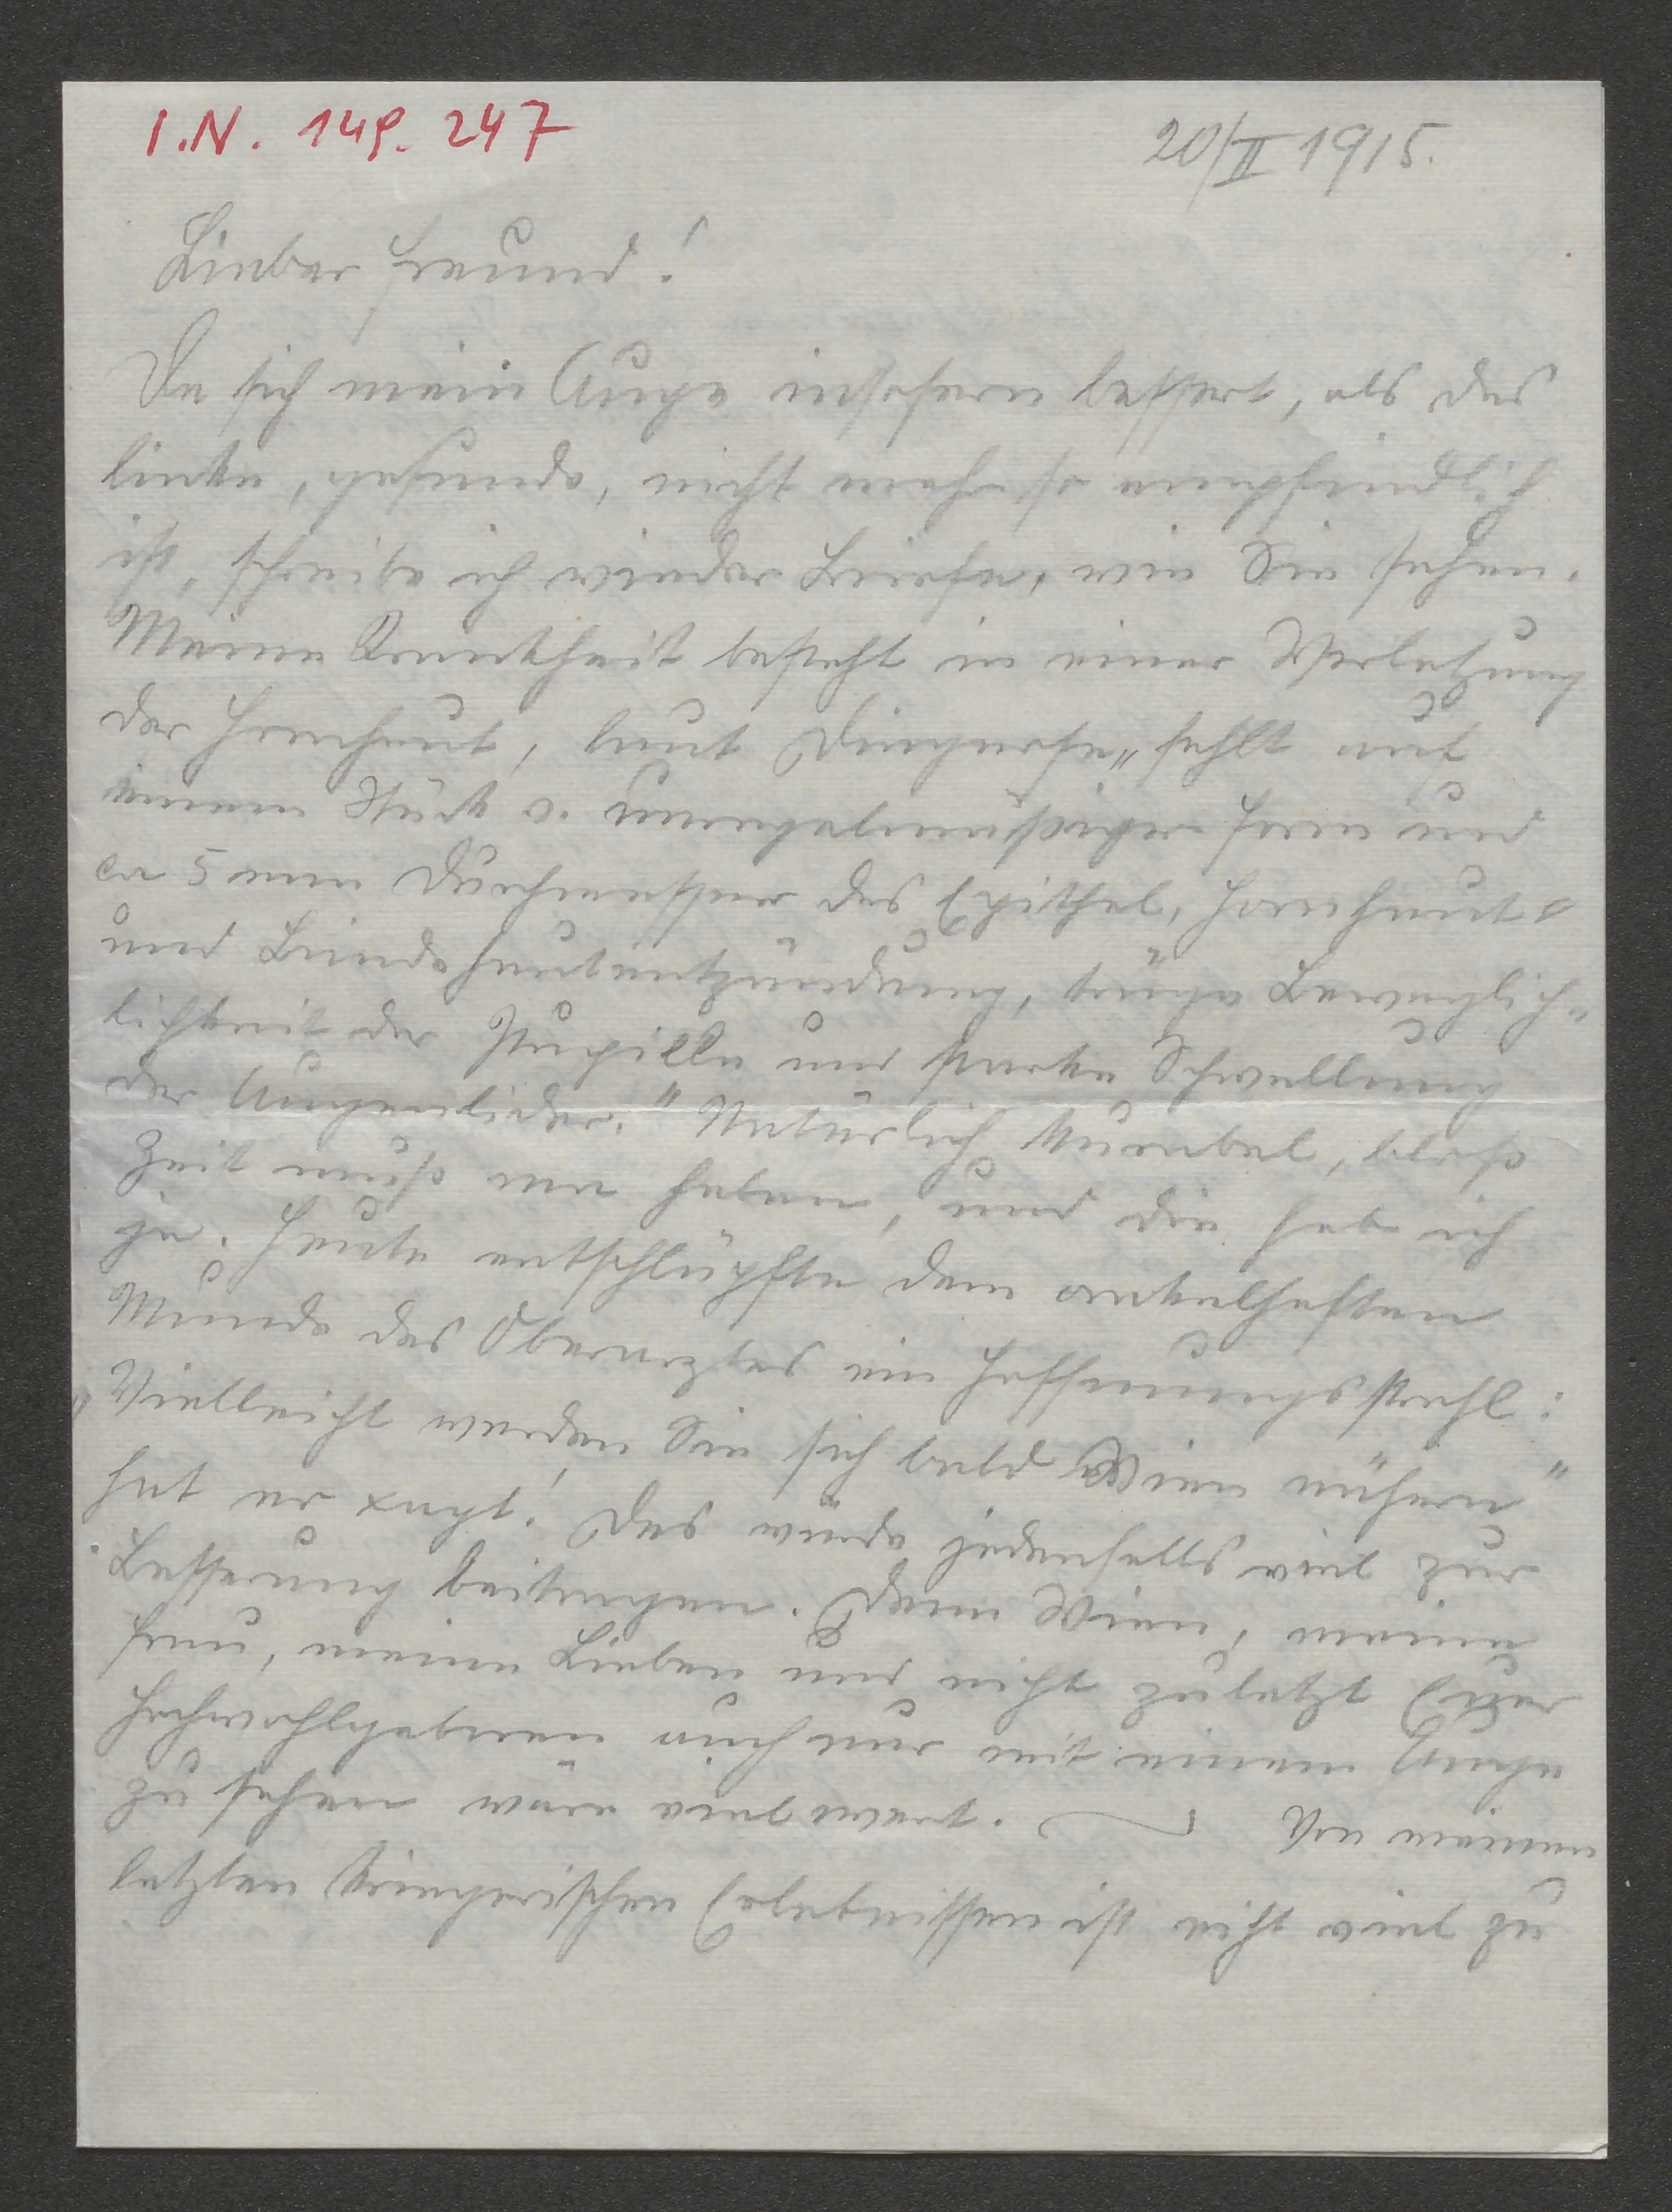 I.N. 149.247
20/II 1915.
Lieber Freund!
Da sich mein Auge insofern bessert, als das
linke, gesunde, nicht mehr so empfindlich
ist, schreibe ich wieder Briefe, wie Sie sehen.
Meine Krankheit besteht in einer Verletzung
der Hornhaut, laut Diagnose „fehlt auf
einem Stück v. unregelmäßiger Form und
ca 5 mm Durchmesser das Epithel, Hornhaut-
und Bindehautentzündung, träge Beweglich-
lichkeit der Pupille und starke Schwellung
der Augenlider." Natürlich kurabel, bloß
Zeit muß ma haben, und die hab ich
ja. Heute entschlüpfte dem orakelhaften
Munde des Oberarztes ein Hoffnungsstrahl:
„Vielleicht werden Sie sich bald Wien nähern"
hat er xagt! Das würde jedenfalls viel zur
Besserung beitragen. Denn Wien, meine
Frau, meine Lieben und nicht zuletzt Euer
Hochwohlgeboren auch nur mit einem Auge
zu sehen wäre viel wert. — Von meinen
letzten kriegerischen Erlebnissen ist nicht viel zu